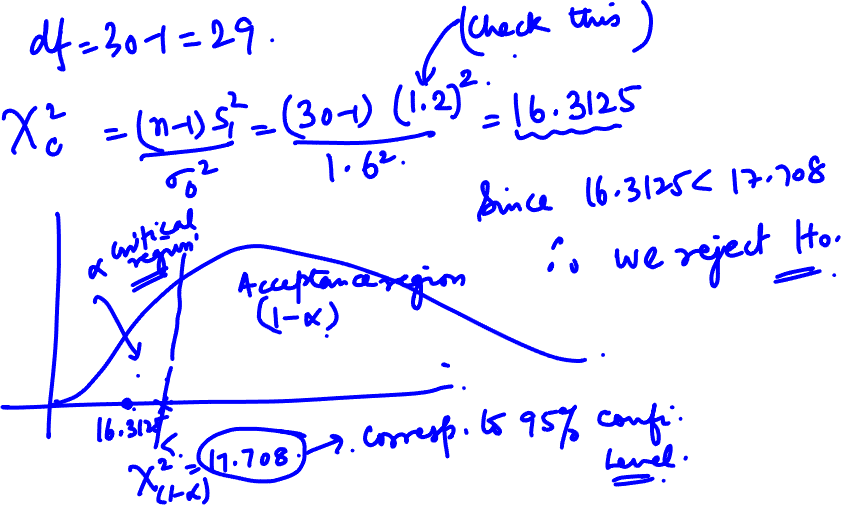 (Check this)
df = 30-1 = 29.
χ²c = (n-1) S₁² / σ₀² = (30-1) (1.2)² / 1.6². = 16.3125
Since 16.3125 < 17.708
∴ we reject H₀.
α critical
region.
Acceptance region
(1-α)
16.3125
χ²(1-α) = 17.708 → corresp. to 95% confi.
Level.